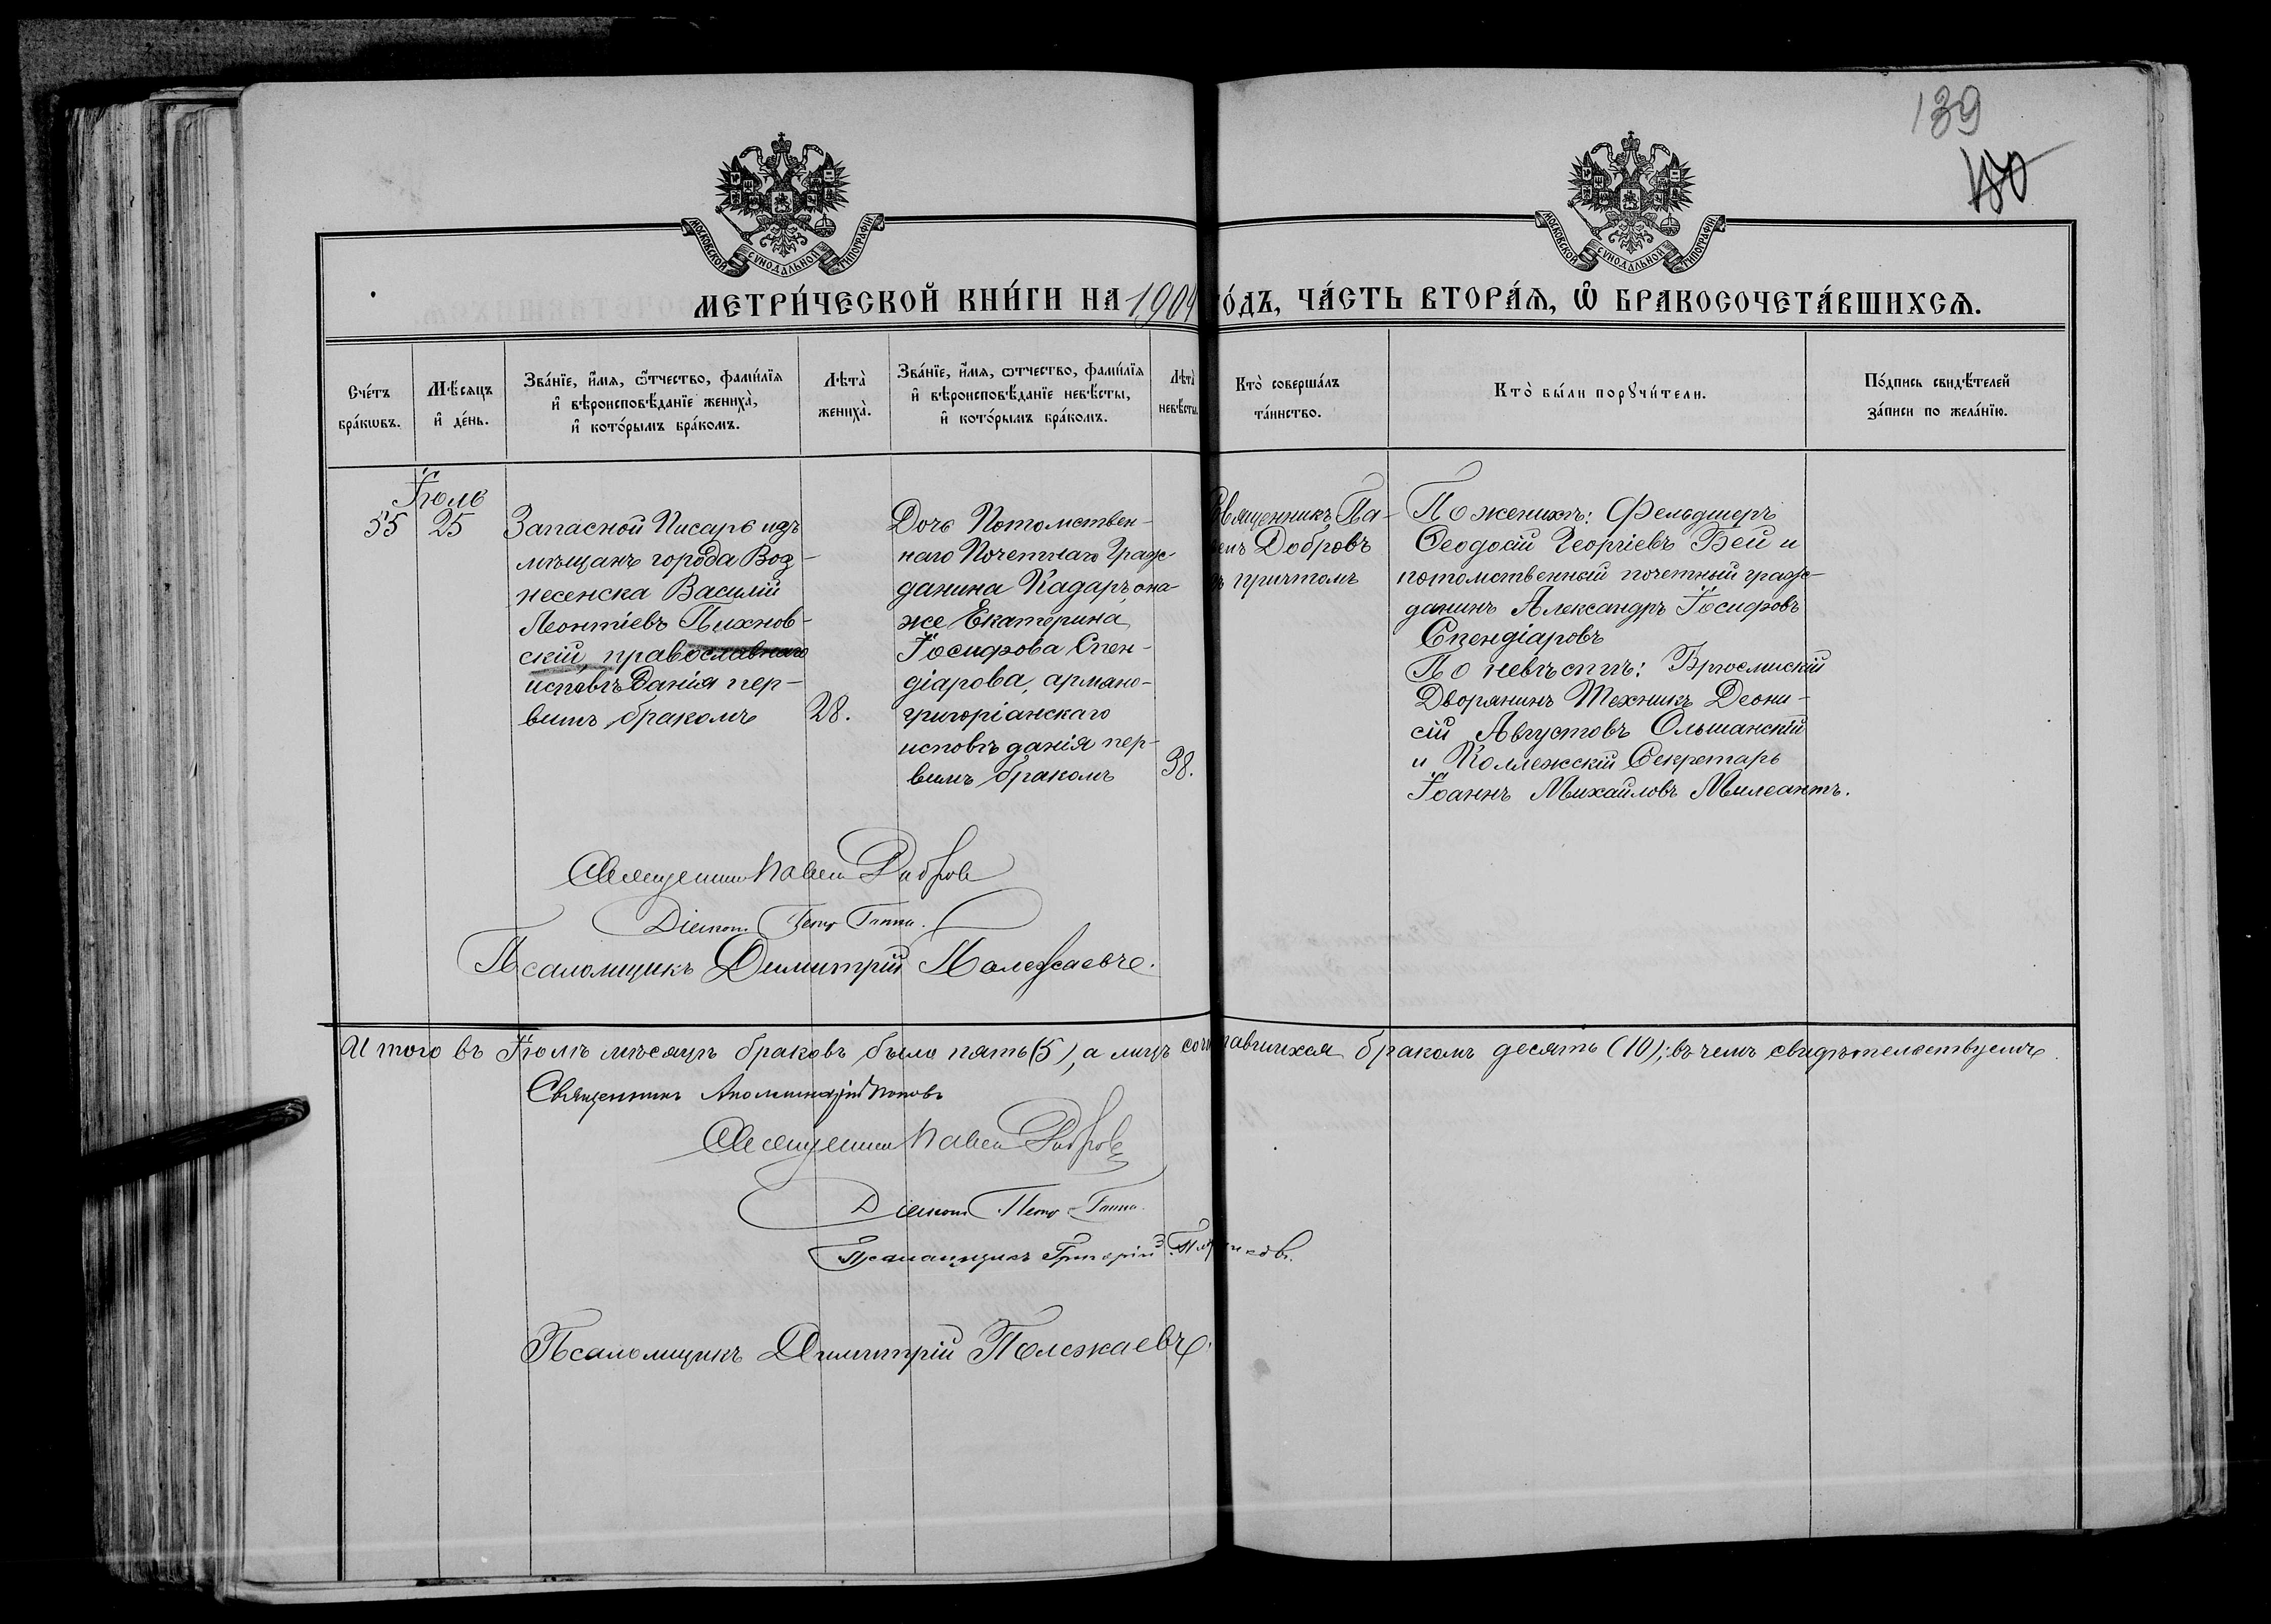 139
180
МОСКОВСКОЙ СѴНОДАЛЬНОЙ ТИПОГРАФІИ
МОСКОВСКОЙ СѴНОДАЛЬНОЙ ТИПОГРАФІИ
МЕТРИ́ЧЕСКОЙ КНИ́ГИ НА 1904 ГО́ДЪ, ЧА́СТЬ ВТОРА́Ѧ, Ѡ҆ БРАКОСОЧЕТА́ВШИХСѦ.
Сче́тъ
бра́кѡвъ.
Мѣ́сяцъ
и҆ де́нь.
Зва́нїе, и҆́мѧ, ѻ҆́тчество, фами́лїѧ
и҆ вѣроисповѣ́данїе жениха̀,
и҆ кото́рымъ бра́комъ.
Лѣта̀
жениха̀.
Зва́нїе, и҆́мѧ, ѻ҆́тчество, фами́лїѧ
и҆ вѣроисповѣ́данїе невѣ́сты,
и҆ кото́рымъ бра́комъ.
Лѣта̀
невѣ́сты.
Кто̀ соверша́лъ
та́инство.
Кто̀ бы́ли порꙋчи́тели.
По́дпись свидѣ́телей
за́писи по жела́нїю.
Іюль
55
25
Запасной Писарь изъ
мѣщанъ города Воз-
несенска Василій
Леонтіевъ Пихнов-
скій, православнаго
исповѣданія пер-
вымъ бракомъ
28.
Дочь Потомствен-
наго Почетнаго Граж-
данина Кадаръ, она-
же Екатерина
Іосифова Спен-
діарова, армяно-
григоріанскаго
исповѣданія пер-
вымъ бракомъ
38.
Священникъ Па-
велъ Добровъ
съ причтомъ
По женихѣ: Фельдшеръ
Ѳеодосій Георгіевъ Бей и
потомственный почетный граж-
данинъ Александръ Іосифовъ
Спендіаровъ
По невѣстѣ:
Дворянинъ Техникъ Деони-
сій Августовъ Ольшанскій
и Коллежскій Секретарь
Іоаннъ Михайловъ Милеантъ.
Священникъ Павелъ Добровъ
Діаконъ Петръ
Псаломщикъ Димитрій Полежаевъ.
Итого въ Іюлѣ мѣсяцѣ браковъ было пять (5), а лицъ сочетавшихся бракомъ десять (10); въ чемъ свидѣтельствуемъ.
Священникъ Аполлинарій Поповъ
Священникъ Павелъ Добровъ
Діаконъ Петръ
Псаломщикъ Григорій
Псаломщикъ Димитрій Полежаевъ.